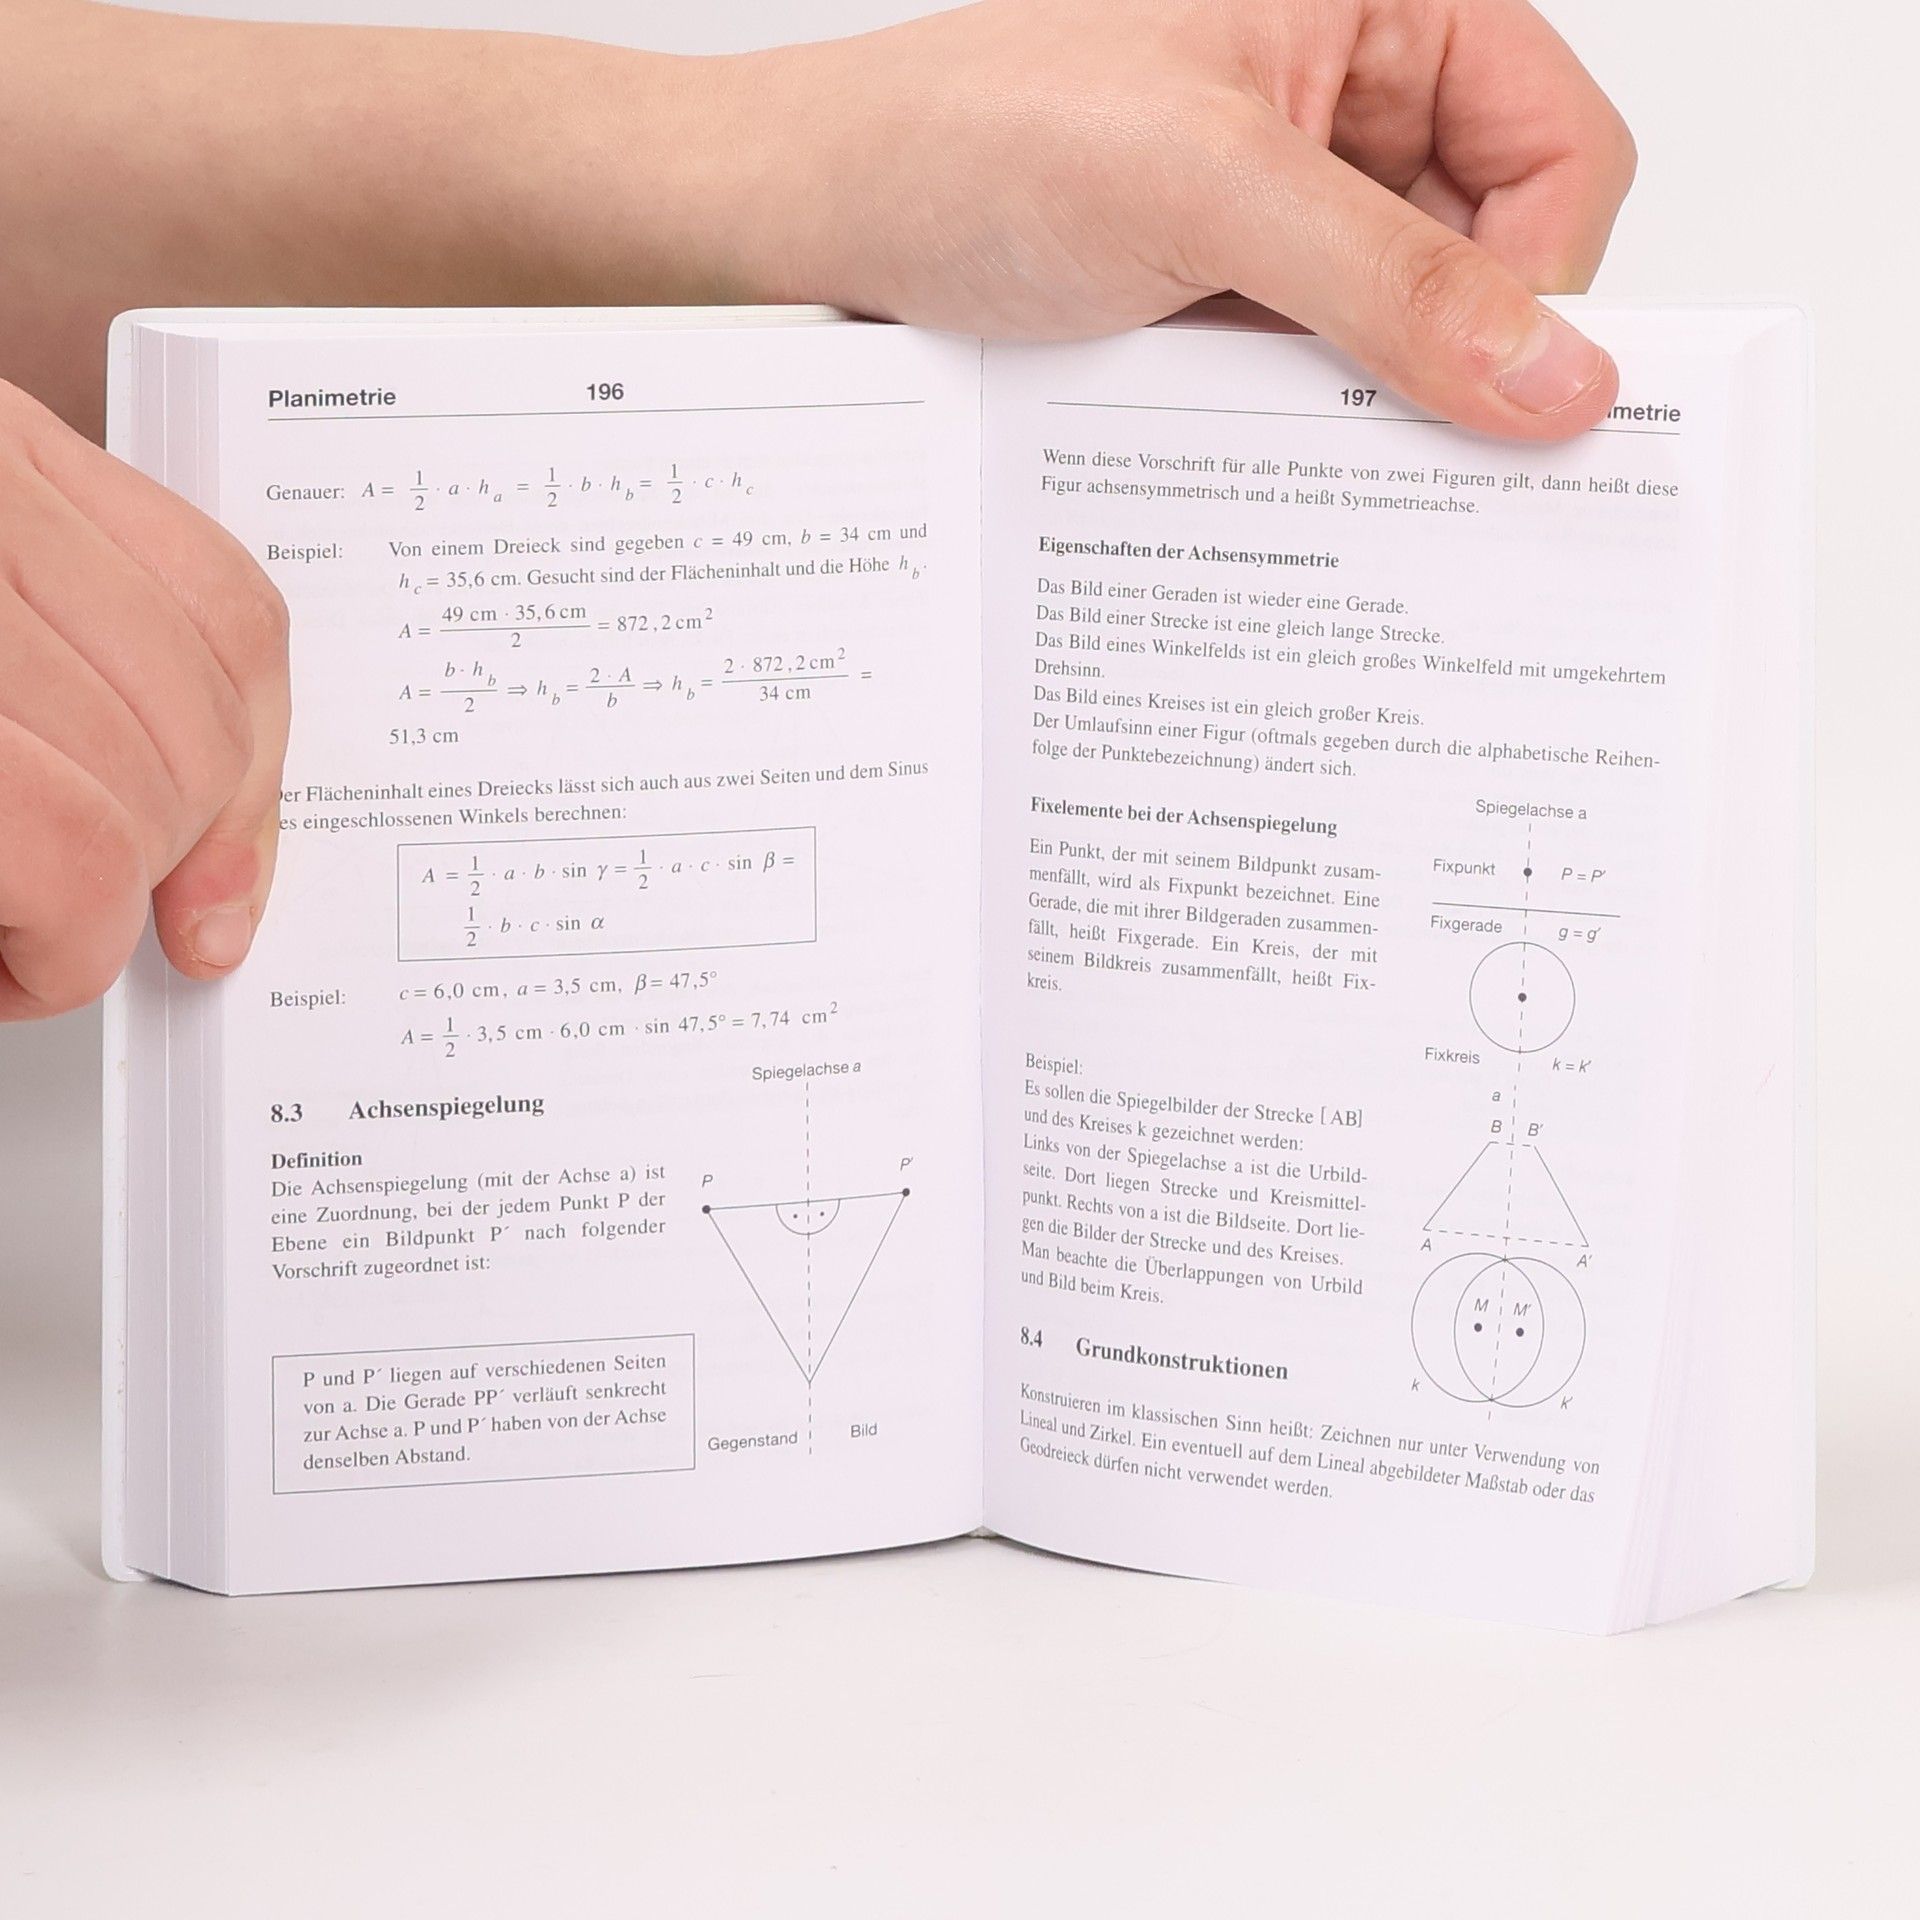 Planimetrie 196
Genauer: A = 1/2 · a · h_a = 1/2 · b · h_b = 1/2 · c · h_c
Beispiel: Von einem Dreieck sind gegeben c = 49 cm, b = 34 cm und
h_c = 35,6 cm. Gesucht sind der Flächeninhalt und die Höhe h_b.
A = (49 cm · 35,6 cm)/2 = 872,2 cm²
A = (b · h_b)/2 ⇒ h_b = (2 · A)/b ⇒ h_b = (2 · 872,2 cm²)/(34 cm) =
51,3 cm
er Flächeninhalt eines Dreiecks lässt sich auch aus zwei Seiten und dem Sinus
es eingeschlossenen Winkels berechnen:
A = 1/2 · a · b · sin γ = 1/2 · a · c · sin β =
1/2 · b · c · sin α
Beispiel: c = 6,0 cm, a = 3,5 cm, β = 47,5°
A = 1/2 · 3,5 cm · 6,0 cm · sin 47,5° = 7,74 cm²
8.3 Achsenspiegelung
Definition
Die Achsenspiegelung (mit der Achse a) ist
eine Zuordnung, bei der jedem Punkt P der
Ebene ein Bildpunkt P´ nach folgender
Vorschrift zugeordnet ist:
P und P´ liegen auf verschiedenen Seiten
von a. Die Gerade PP´ verläuft senkrecht
zur Achse a. P und P´ haben von der Achse
denselben Abstand.
Spiegelachse a
P P'
Gegenstand Bild
197 metrie
Wenn diese Vorschrift für alle Punkte von zwei Figuren gilt, dann heißt diese
Figur achsensymmetrisch und a heißt Symmetrieachse.
Eigenschaften der Achsensymmetrie
Das Bild einer Geraden ist wieder eine Gerade.
Das Bild einer Strecke ist eine gleich lange Strecke.
Das Bild eines Winkelfelds ist ein gleich großes Winkelfeld mit umgekehrtem
Drehsinn.
Das Bild eines Kreises ist ein gleich großer Kreis.
Der Umlaufsinn einer Figur (oftmals gegeben durch die alphabetische Reihen-
folge der Punktebezeichnung) ändert sich.
Fixelemente bei der Achsenspiegelung
Ein Punkt, der mit seinem Bildpunkt zusam-
menfällt, wird als Fixpunkt bezeichnet. Eine
Gerade, die mit ihrer Bildgeraden zusammen-
fällt, heißt Fixgerade. Ein Kreis, der mit
seinem Bildkreis zusammenfällt, heißt Fix-
kreis.
Spiegelachse a
Fixpunkt P = P'
Fixgerade g = g'
Fixkreis k = k'
Beispiel:
Es sollen die Spiegelbilder der Strecke [ AB]
und des Kreises k gezeichnet werden:
Links von der Spiegelachse a ist die Urbild-
seite. Dort liegen Strecke und Kreismittel-
punkt. Rechts von a ist die Bildseite. Dort lie-
gen die Bilder der Strecke und des Kreises.
Man beachte die Überlappungen von Urbild
und Bild beim Kreis.
a
B B'
A A'
M M'
k k'
8.4 Grundkonstruktionen
Konstruieren im klassischen Sinn heißt: Zeichnen nur unter Verwendung von
Lineal und Zirkel. Ein eventuell auf dem Lineal abgebildeter Maßstab oder das
Geodreieck dürfen nicht verwendet werden.